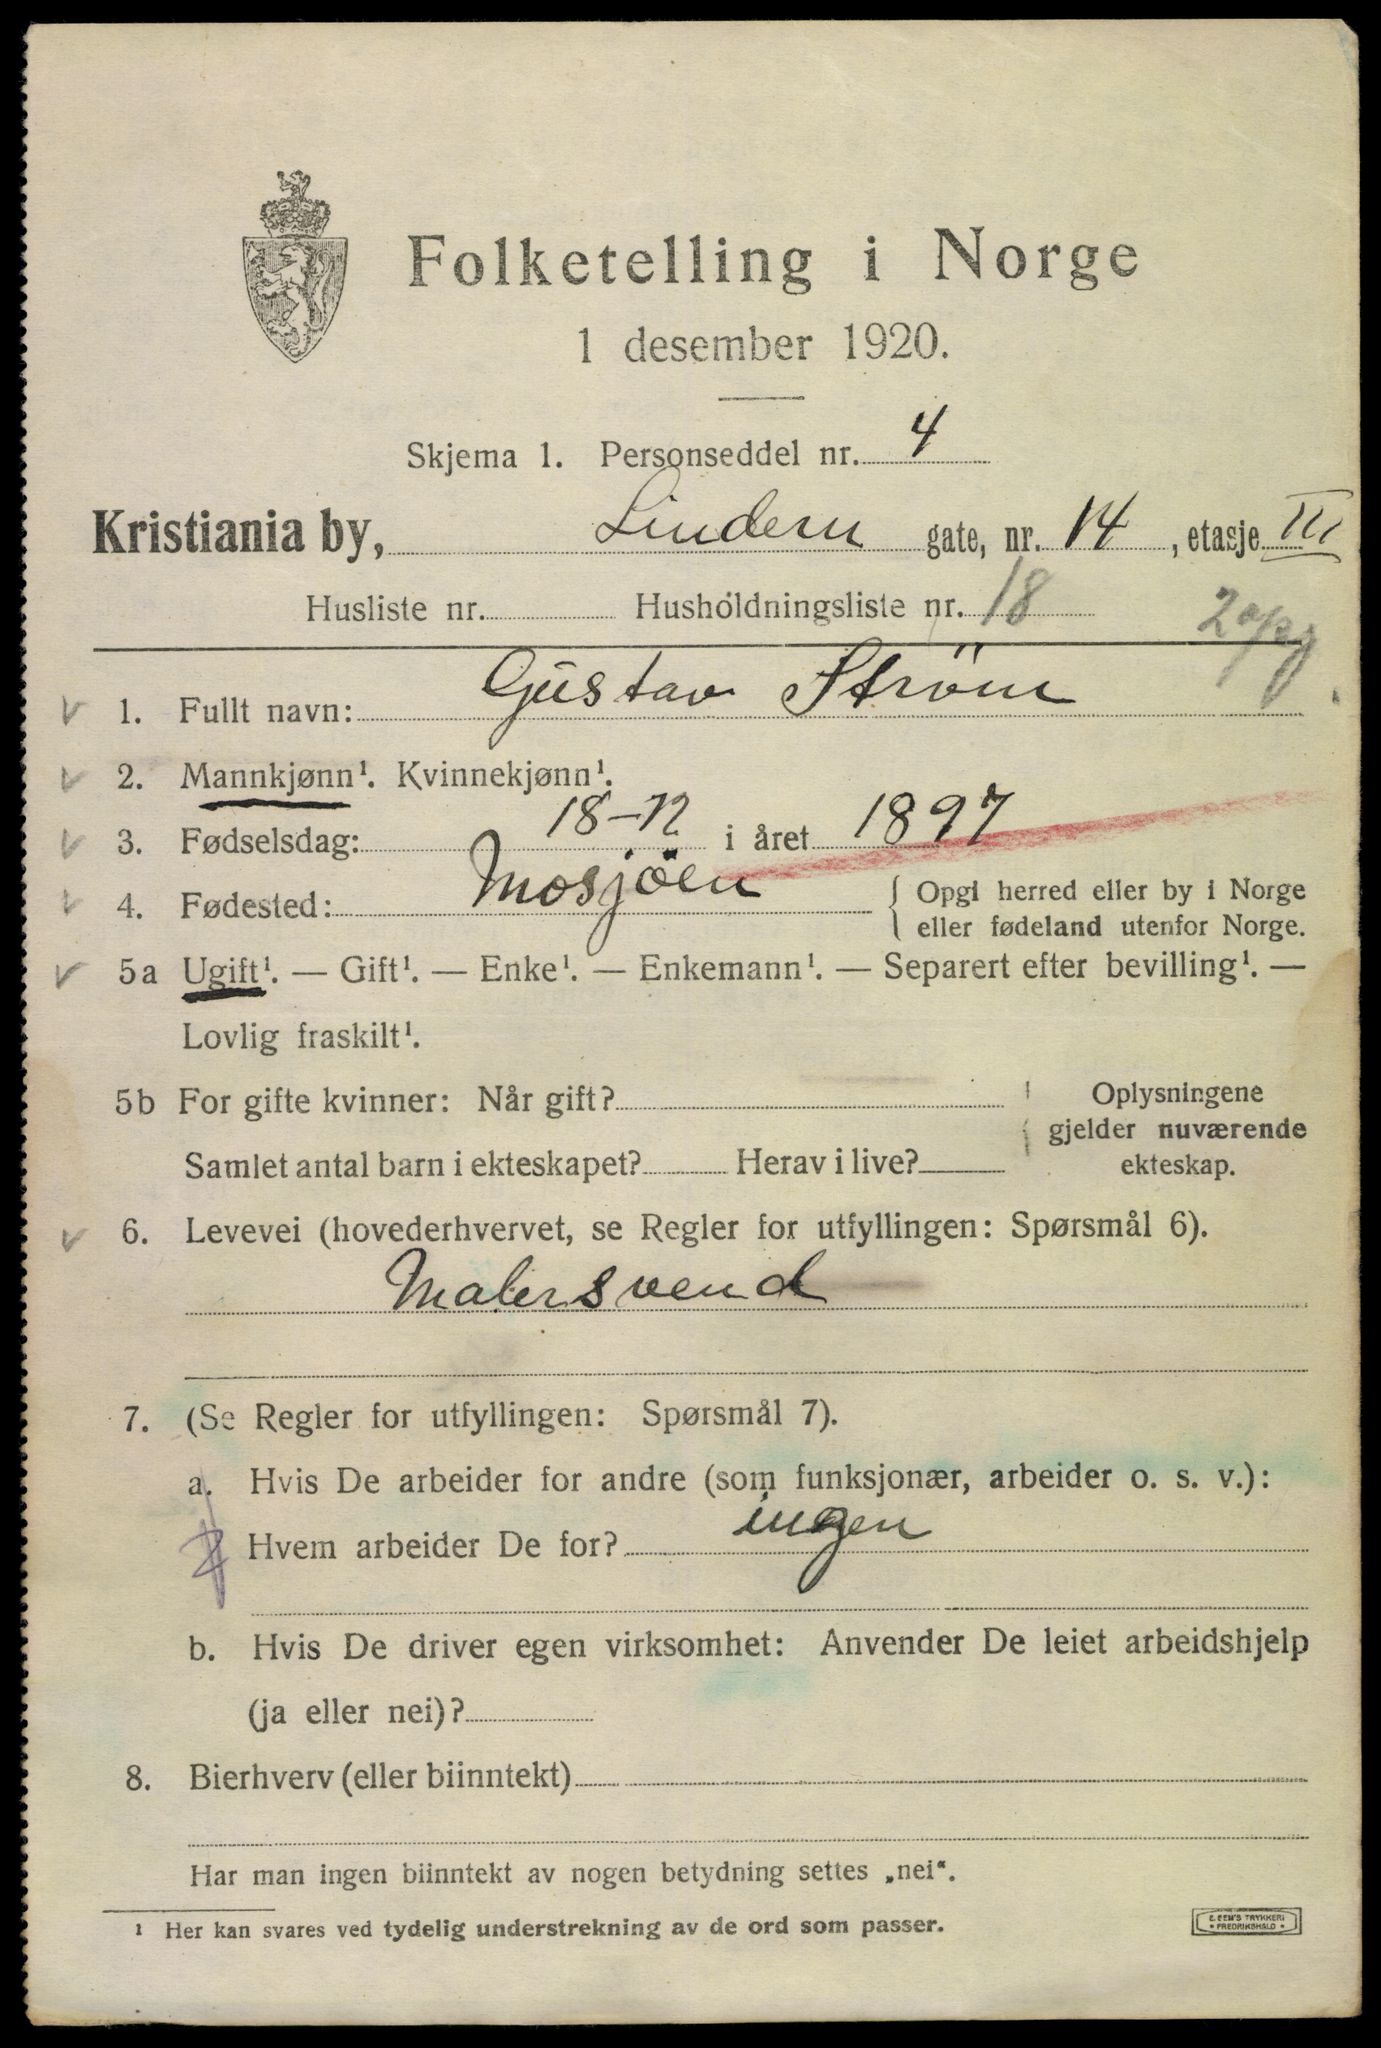 Folketelling i Norge
1 desember 1920.
Skjema 1. Personseddel nr. 4
Kristiania by, Lindern gate, nr. 14, etasje III
Husliste nr. Husholdningsliste nr. 18
2 opg.
1. Fullt navn: Gustav Ström
2. Mannkjønn¹. Kvinnekjønn¹.
3. Fødselsdag: 18-12 i året 1897
4. Fødested: Mosjöen { Opgi herred eller by i Norge
eller fødeland utenfor Norge.
5a Ugift¹. — Gift¹. — Enke¹. — Enkemann¹. — Separert efter bevilling¹. —
Lovlig fraskilt¹.
5b For gifte kvinner: Når gift? Oplysningene
gjelder nuværende
Samlet antal barn i ekteskapet? Herav i live? ekteskap.
6. Levevei (hovederhvervet, se Regler for utfyllingen: Spørsmål 6).
Malersvend
7. (Se Regler for utfyllingen: Spørsmål 7).
a. Hvis De arbeider for andre (som funksjonær, arbeider o. s. v.):
Hvem arbeider De for? ingen
b. Hvis De driver egen virksomhet: Anvender De leiet arbeidshjelp
(ja eller nei)?
8. Bierhverv (eller biinntekt)
Har man ingen biinntekt av nogen betydning settes „nei“.
¹ Her kan svares ved tydelig understrekning av de ord som passer.
TRYKKERI
FREDRIKSHALD